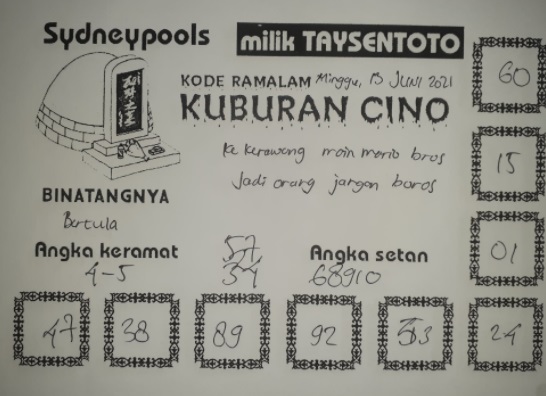 Sydneypools
milik TAYSENTOTO
KODE RAMALAM Minggu, 13 JUNI 2021
KUBURAN CINO
60
Ke Kerawang main mario bros
Jadi orang jangan boros
15
BINATANGNYA
Bercula
Angka keramat
4-5
57
34
Angka setan
68910
01
47
38
89
92
24